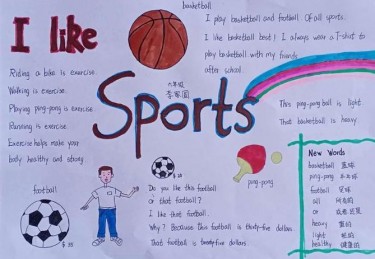 I like
Sports
六年级
basketball
I play basketball and football Of all sports.
I like basketball best! I always wear a T-shirt to
play basketball with my friends
after school.
Riding a bike is exercise
Walking is exercise.
Playing ping-pong is exercise.
Running is exercise
Exercise helps make your
body healthy and strong.
This ping-pong ball is light.
That basketball is heavy.
football
$35
$25
Do you like this football
or that football?
I like that football.
Why? Because this football is thirty-five dollars.
That football is twenty-five dollars.
ping-pong
New Words
basketball 蓝球
ping-pong 乒乓球
football 足球
all 所有的
or 或者
heavy 重的
light 轻的
healthy 健康的